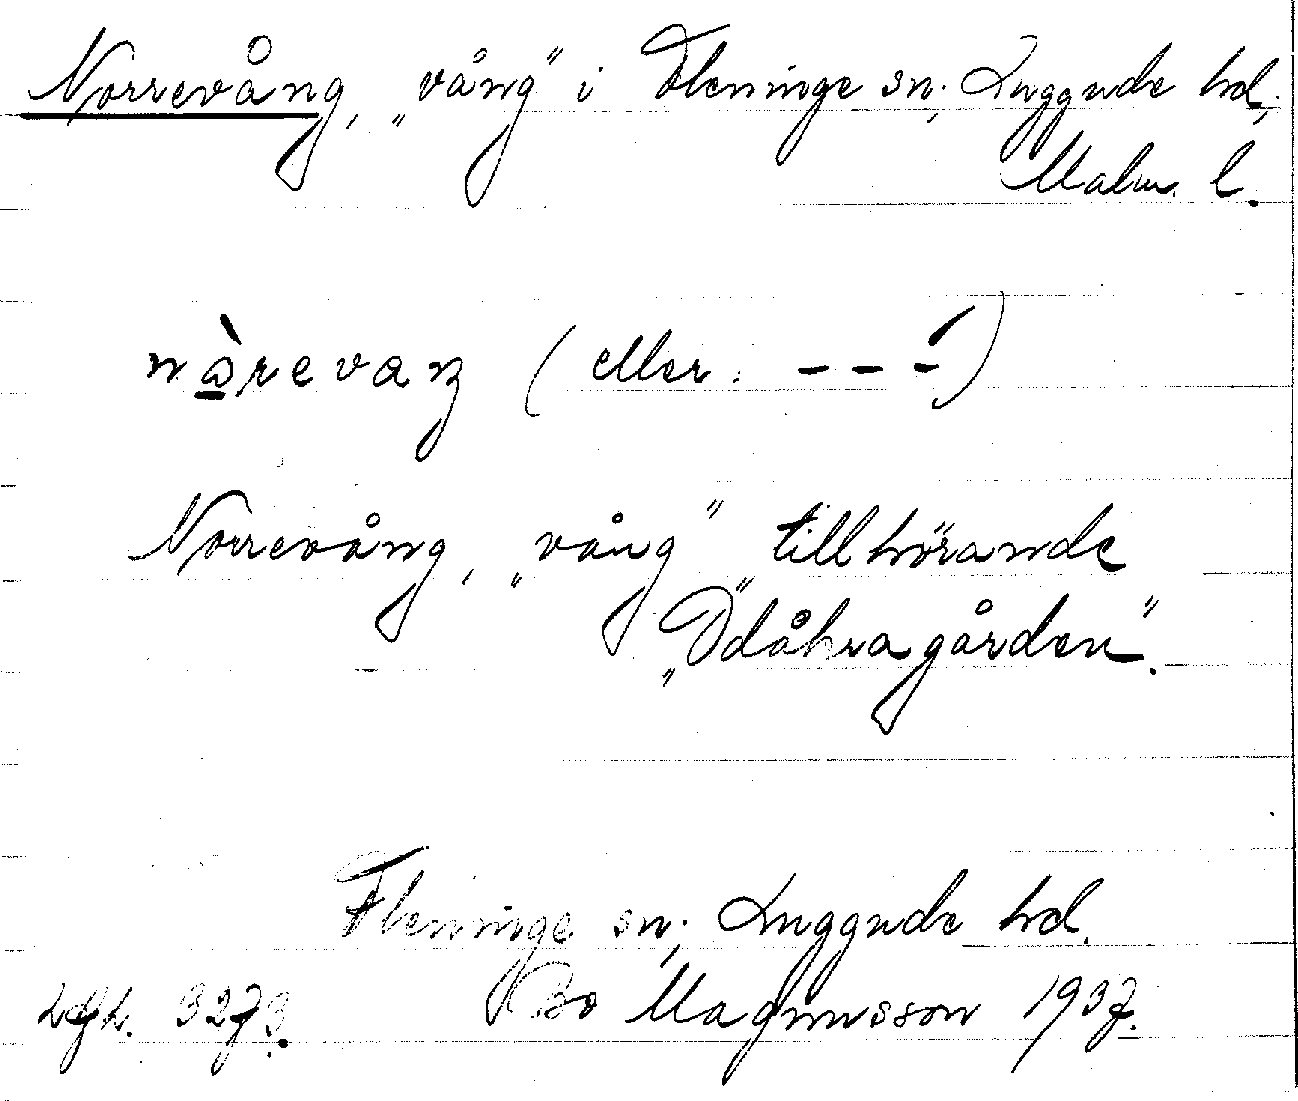 Norrevång, „vång” i Fleninge sn, Luggude hd,
Malm. l.
nòrevaŋ (eller: - - -́)
Norrevång, „vång” tillhörande
„Ödåkragården”.
Fleninge sn, Luggude hd.
3273. Bo Magnusson 1937.